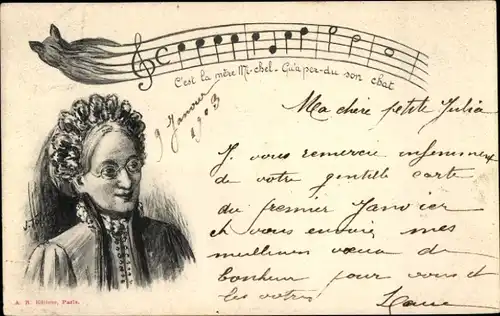 C'est la mère Mi-chel - Qu'a per-du son chat
9 Janvier
1903
Ma chère petite Julia
Je vous remercie infiniment
de votre gentille carte
du premier Janvier
et vous envoie mes
meilleurs vœux de
bonheur pour vous et
les votres
A. B. Editeur, Paris.